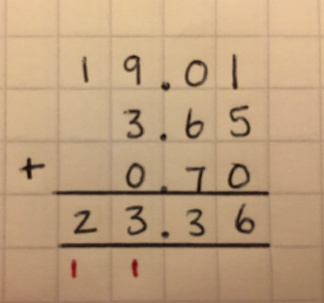 19.01
3.65
+ 0.70
23.36
1 1